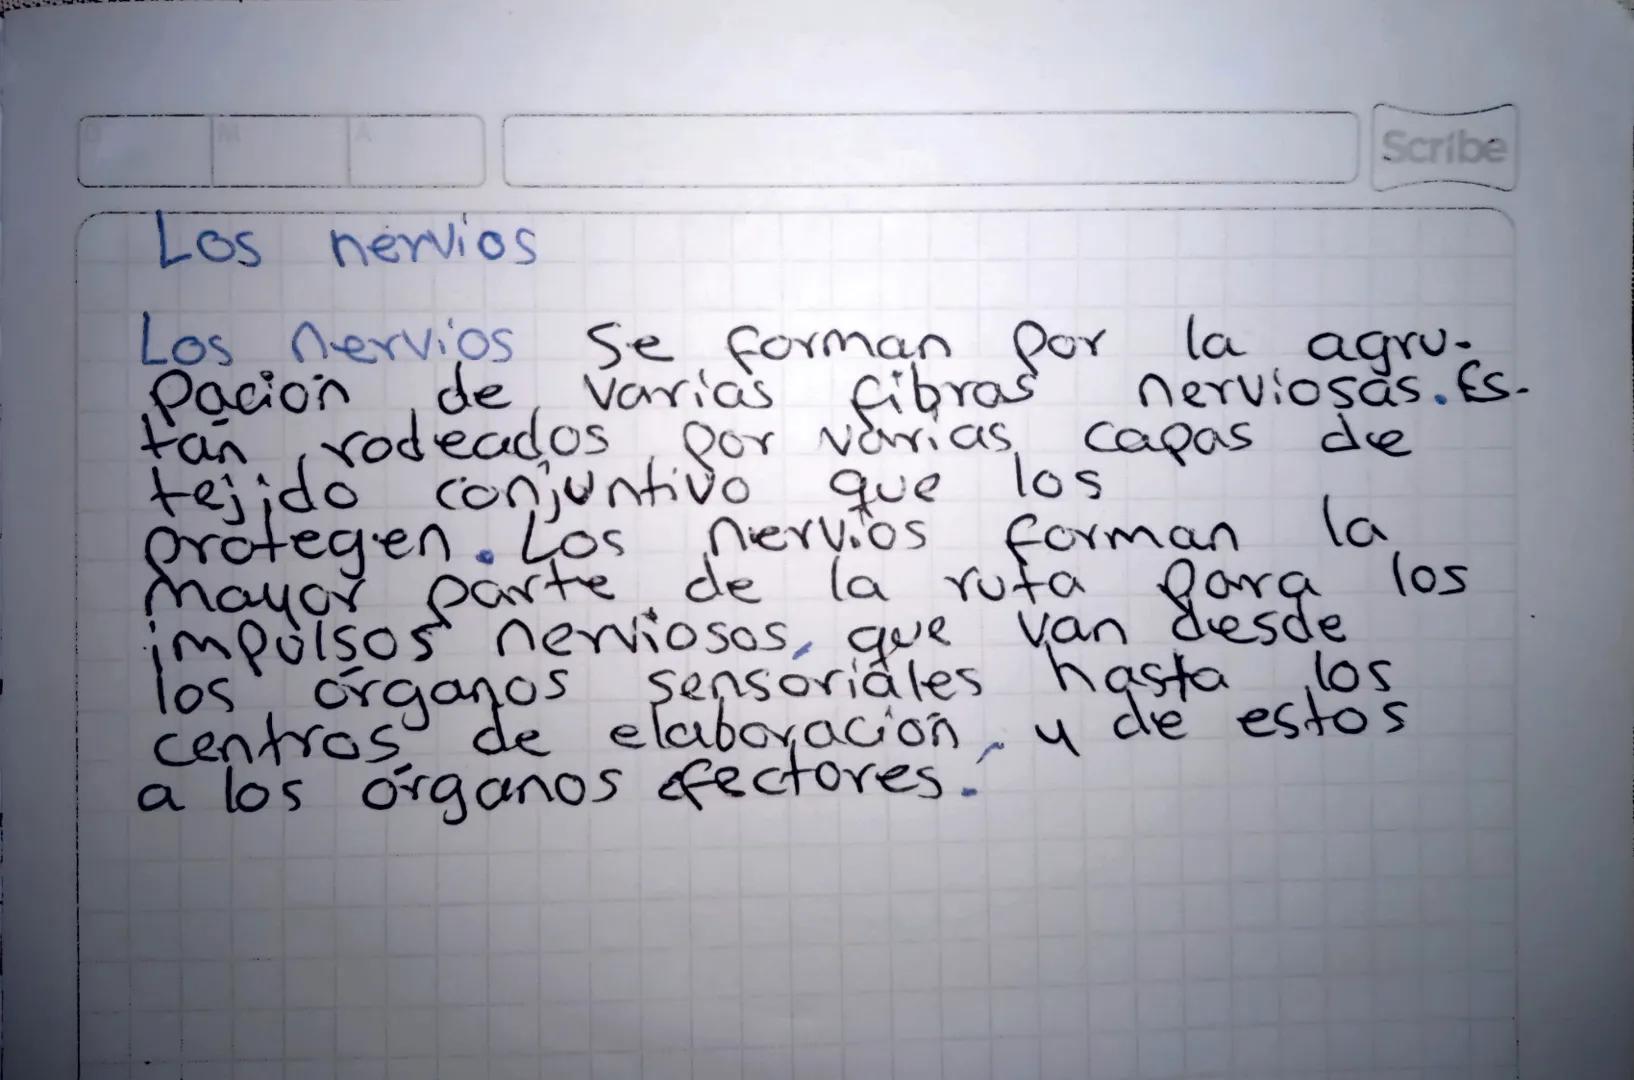 D M A
Scribe
Los nervios
Los nervios se forman por la agru-
pación de varias fibras nerviosas. Es-
tán rodeados por varias capas de
tejido conjuntivo que los
protegen. Los nervios forman la
mayor parte de la ruta para los
impulsos nerviosos, que van desde
los órganos sensoriales hasta los
centros de elaboración, y de estos
a los órganos efectores.